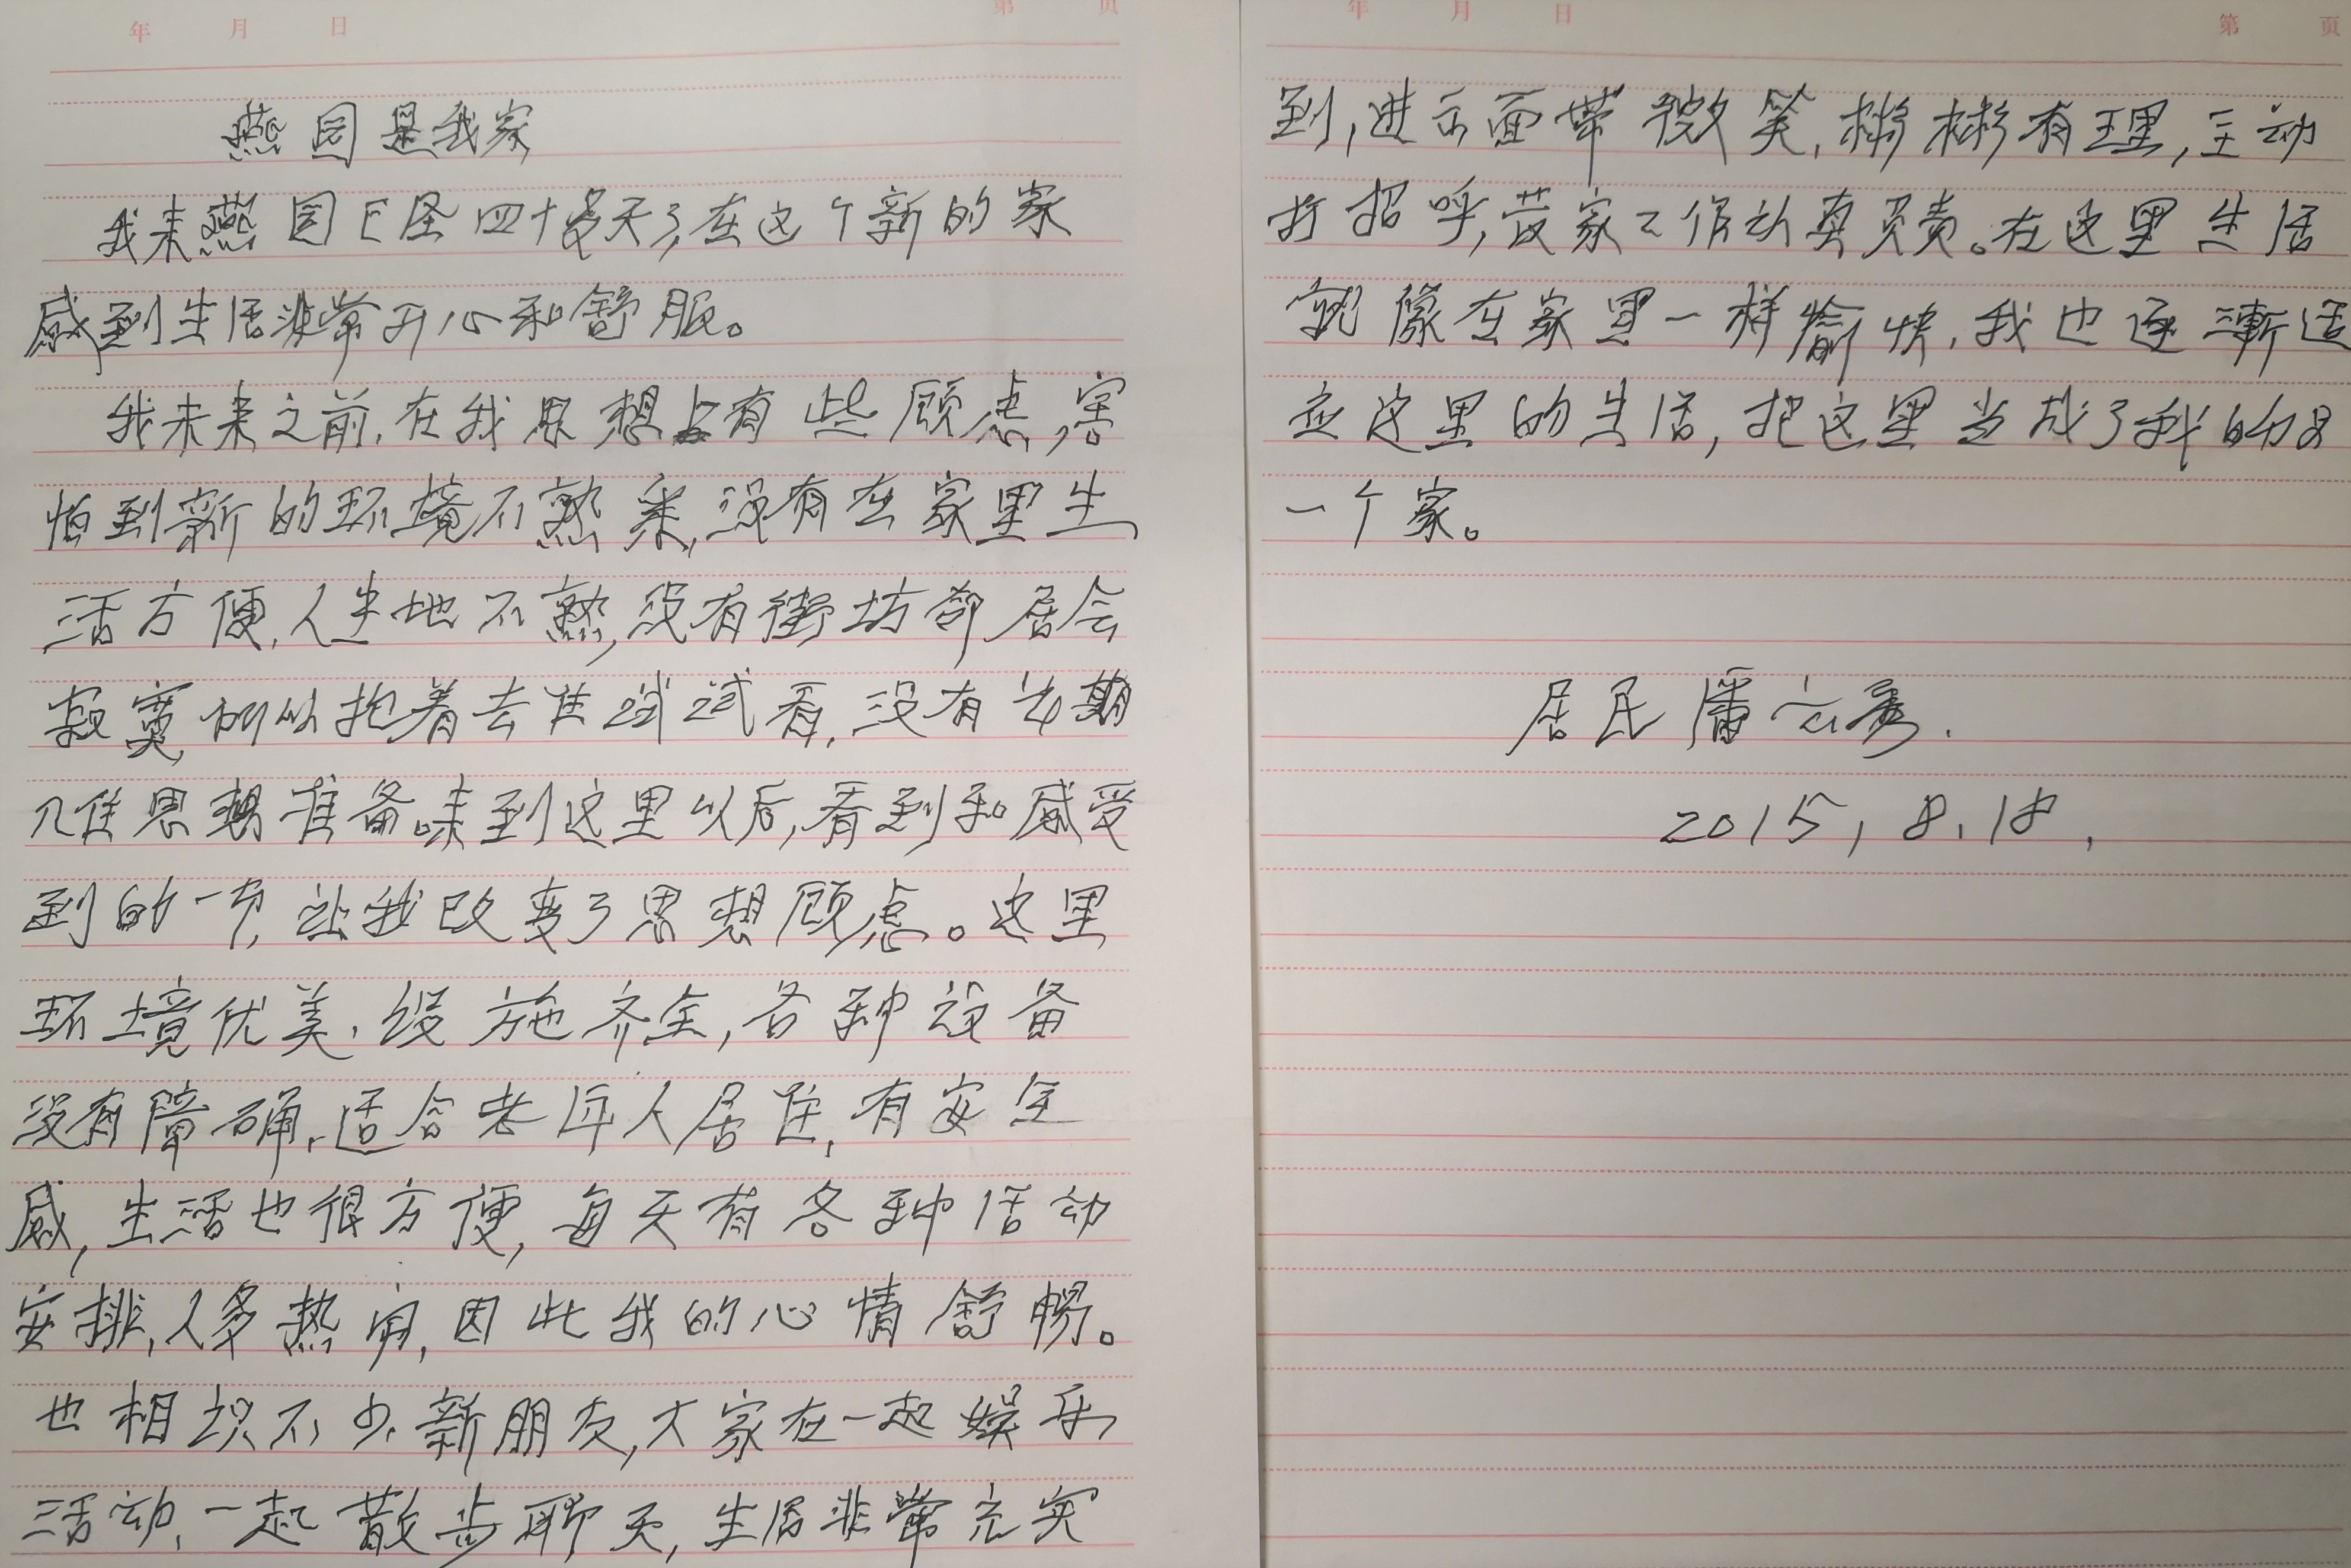 年 月 日 第 页
燕园是我家
我来燕园已经四十多天了,在这个新的家
感到生活非常开心和舒服。
我未来之前,在我思想上有些顾虑,害
怕到新的环境不熟悉,没有在家里生
活方便,人生地不熟,没有街坊邻居会
寂寞,所以抱着去住试试看,没有长期
入住思想准备。来到这里以后,看到和感受
到的一切,让我改变了思想顾虑。这里
环境优美,设施齐全,各种设备
没有障碍,适合老年人居住,有安全
感,生活也很方便,每天有各种活动
安排,人多热闹,因此我的心情舒畅。
也相识不少新朋友,大家在一起娱乐
活动,一起散步聊天,生活非常充实
年 月 日 第 页
到,进示面带微笑,彬彬有理,主动
打招呼,管家工作认真负责。在这里生活
就像在家里一样愉快,我也逐渐适
应这里的生活,把这里当成了我的另
一个家。
居民潘云秀.
2015,8.18,